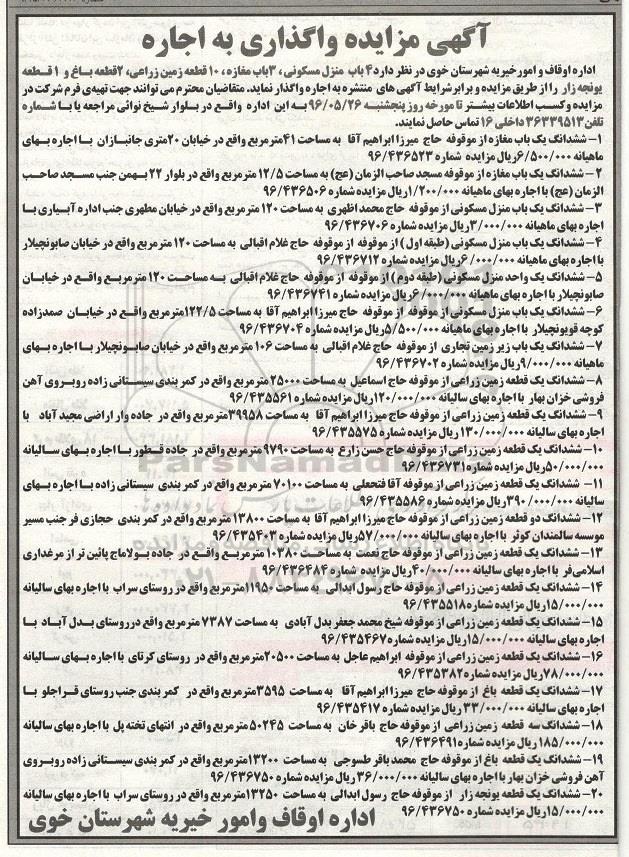 آگهی مزایده واگذاری به اجاره
اداره اوقاف و امور خیریه شهرستان خوی در نظر دارد ۴ باب منزل مسکونی ، ۳باب مغازه ، ۱۰ قطعه زمین زراعی، ۲قطعه باغ و ۱ قطعه
یونجه زار را از طریق مزایده و برابر شرایط آگهی های منتشره به اجاره واگذار نماید. متقاضیان محترم می توانند جهت تهیه‌ی فرم شرکت در
مزایده و کسب اطلاعات بیشتر تا مورخه روز پنجشنبه ۹۶/۰۵/۲۶ به این اداره واقع در بلوار شیخ نوائی مراجعه یا با شماره
تلفن ۳۶۳۳۹۵۱۳ داخلی ۱۶ تماس حاصل نمایند.
۱- ششدانگ یک باب مغازه از موقوفه حاج میرزا ابراهیم آقا به مساحت ۴۱مترمربع واقع در خیابان ۲۰متری جانبازان با اجاره بهای
ماهیانه ۶/۵۰۰/۰۰۰ریال مزایده شماره ۹۶/۴۳۶۵۲۳
۲- ششدانگ یک باب مغازه از موقوفه مسجد صاحب الزمان (عج) به مساحت ۱۲/۵ مترمربع واقع در بلوار ۲۲ بهمن جنب مسجد صاحب
الزمان (عج) با اجاره بهای ماهیانه ۱/۲۰۰/۰۰۰ریال مزایده شماره ۹۶/۴۳۶۵۰۶
۳- ششدانگ یک باب منزل مسکونی از موقوفه حاج محمد اظهری به مساحت ۱۲۰ مترمربع واقع در خیابان مطهری جنب اداره آبیاری با
اجاره بهای ماهیانه ۳/۰۰۰/۰۰۰ریال مزایده شماره ۹۶/۴۳۶۷۰۶
۴- ششدانگ یک باب منزل مسکونی (طبقه اول ) از موقوفه از موقوفه حاج غلام اقبالی به مساحت ۱۲۰ مترمربع واقع در خیابان صابونچیلار
با اجاره بهای ماهیانه ۶/۰۰۰/۰۰۰ ریال مزایده شماره ۹۶/۴۳۶۷۱۲
۵- ششدانگ یک واحد منزل مسکونی (طبقه دوم ) از موقوفه از موقوفه حاج غلام اقبالی به مساحت ۱۲۰ مترمربع واقع در خیابان
صابونچیلار با اجاره بهای ماهیانه ۶/۰۰۰/۰۰۰ ریال مزایده شماره ۹۶/۴۳۶۷۴۱
۶- ششدانگ یک باب منزل مسکونی از موقوفه از موقوفه حاج میرزا ابراهیم آقا به مساحت ۱۲۲/۵مترمربع واقع در خیابان صمدزاده
کوچه قویونچیلار با اجاره بهای ماهیانه ۵/۵۰۰/۰۰۰ریال مزایده شماره ۹۶/۴۳۶۷۰۴
۷- ششدانگ یک باب زیر زمین تجاری از موقوفه حاج غلام اقبالی به مساحت ۱۰۶ مترمربع واقع در خیابان صابونچیلار با اجاره بهای
ماهیانه ۹/۰۰۰/۰۰۰ریال مزایده شماره ۹۶/۴۳۶۷۰۲
۸- ششدانگ یک قطعه زمین زراعی از موقوفه حاج اسماعیل به مساحت ۲۵۰۰۰مترمربع واقع در کمر بندی سیستانی زاده روبروی آهن
فروشی خزان بهار با اجاره بهای سالیانه ۱۲۰/۰۰۰/۰۰۰ریال مزایده شماره ۹۶/۴۳۵۵۶۱
۹- ششدانگ یک قطعه زمین زراعی از موقوفه حاج میرزا ابراهیم آقا به مساحت ۳۹۹۵۸مترمربع واقع در جاده وار اراضی مجید آباد با
اجاره بهای سالیانه ۱۳۰/۰۰۰/۰۰۰ریال مزایده شماره ۹۶/۴۳۵۵۷۵
۱۰- ششدانگ یک قطعه زمین زراعی از موقوفه حاج حسن زارع به مساحت ۹۷۹۰مترمربع واقع در جاده قطور با اجاره بهای سالیانه
۵۰/۰۰۰/۰۰۰ریال مزایده شماره ۹۶/۴۳۶۷۳۱
۱۱- ششدانگ یک قطعه زمین زراعی از موقوفه آقا فتحعلی به مساحت ۷۰۱۰۰ مترمربع واقع در کمر بندی سیستانی زاده با اجاره بهای
سالیانه ۳۹۰/۰۰۰/۰۰۰ریال مزایده شماره ۹۶/۴۳۵۵۸۶
۱۲- ششدانگ دو قطعه زمین زراعی از موقوفه حاج میرزا ابراهیم آقا به مساحت ۱۳۸۰۰مترمربع واقع در کمر بندی حجازی فر جنب مسیر
موسسه سالمندان کوثر با اجاره بهای سالیانه ۵۷/۰۰۰/۰۰۰ریال مزایده شماره ۹۶/۴۳۵۴۰۳
۱۳- ششدانگ یک قطعه زمین زراعی از موقوفه حاج نعمت به مساحت ۱۰۳۸۰ مترمربع واقع در جاده بولاماج پائین تر از مرغداری
اسلامی‌فر با اجاره بهای سالیانه ۴۰/۰۰۰/۰۰۰ریال مزایده شماره ۹۶/۴۳۶۴۸۴
۱۴- ششدانگ یک قطعه زمین زراعی از موقوفه حاج رسول ابدالی به مساحت ۱۱۹۵۰مترمربع واقع در روستای سراب با اجاره بهای سالیانه
۱۵/۰۰۰/۰۰۰ریال مزایده شماره ۹۶/۴۳۵۵۱۸
۱۵- ششدانگ یک قطعه زمین زراعی از موقوفه شیخ محمد جعفر بدل آبادی به مساحت ۷۳۸۷ مترمربع واقع درروستای بدل آباد با
اجاره بهای سالیانه ۱۵/۰۰۰/۰۰۰ریال مزایده شماره ۹۶/۴۳۵۴۶۷
۱۶- ششدانگ یک قطعه زمین زراعی از موقوفه ابراهیم عاجل به مساحت ۲۰۵۰۰مترمربع واقع در روستای کرتای با اجاره بهای سالیانه
۷۸/۰۰۰/۰۰۰ریال مزایده شماره ۹۶/۴۳۵۳۸۲
۱۷- ششدانگ یک قطعه باغ از موقوفه حاج میرزا ابراهیم آقا به مساحت ۳۵۹۵ مترمربع واقع در کمر بندی جنب روستای قراجلو با
اجاره بهای سالیانه ۳۳/۰۰۰/۰۰۰ ریال مزایده شماره ۹۶/۴۳۵۴۱۷
۱۸- ششدانگ سه قطعه زمین زراعی از موقوفه حاج باقر خان به مساحت ۵۰۲۴۵ مترمربع واقع در انتهای تخته پل با اجاره بهای سالیانه
۱۸۵/۰۰۰/۰۰۰ریال مزایده شماره ۹۶/۴۳۶۴۹۱
۱۹- ششدانگ یک قطعه باغ از موقوفه حاج محمد باقر طسوجی به مساحت ۱۳۲۰۰مترمربع واقع در کمر بندی سیستانی زاده روبروی
آهن فروشی خزان بهار با اجاره بهای سالیانه ۳۶/۰۰۰/۰۰۰ریال مزایده شماره ۹۶/۴۳۶۷۵۰
۲۰- ششدانگ یک قطعه یونجه زار از موقوفه حاج رسول ابدالی به مساحت ۱۳۲۵۰مترمربع واقع در روستای سراب با اجاره بهای سالیانه
۱۵/۰۰۰/۰۰۰ریال مزایده شماره ۹۶/۴۳۶۷۵۰
اداره اوقاف وامور خیریه شهرستان خوی
ParsNamad